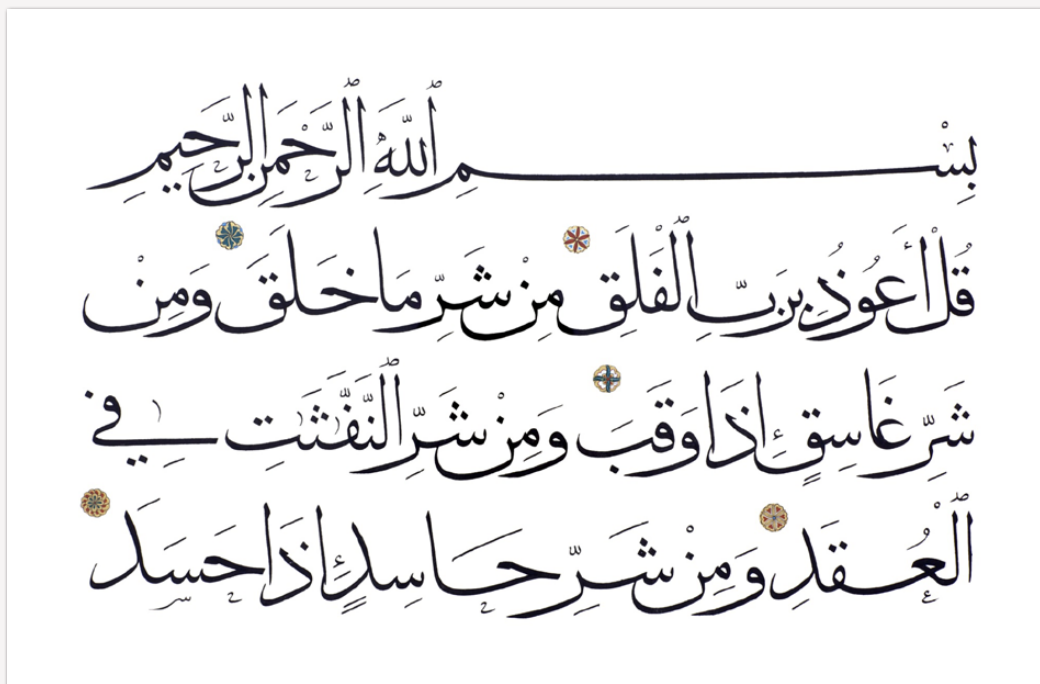 بِسْمِ ٱللَّهِ ٱلرَّحْمَٰنِ ٱلرَّحِيمِ
قُلْ أَعُوذُ بِرَبِّ ٱلْفَلَقِ مِنْ شَرِّ مَا خَلَقَ وَمِنْ
شَرِّ غَاسِقٍ إِذَا وَقَبَ وَمِنْ شَرِّ ٱلنَّفَّٰثَٰتِ فِي
ٱلْعُقَدِ وَمِنْ شَرِّ حَاسِدٍ إِذَا حَسَدَ